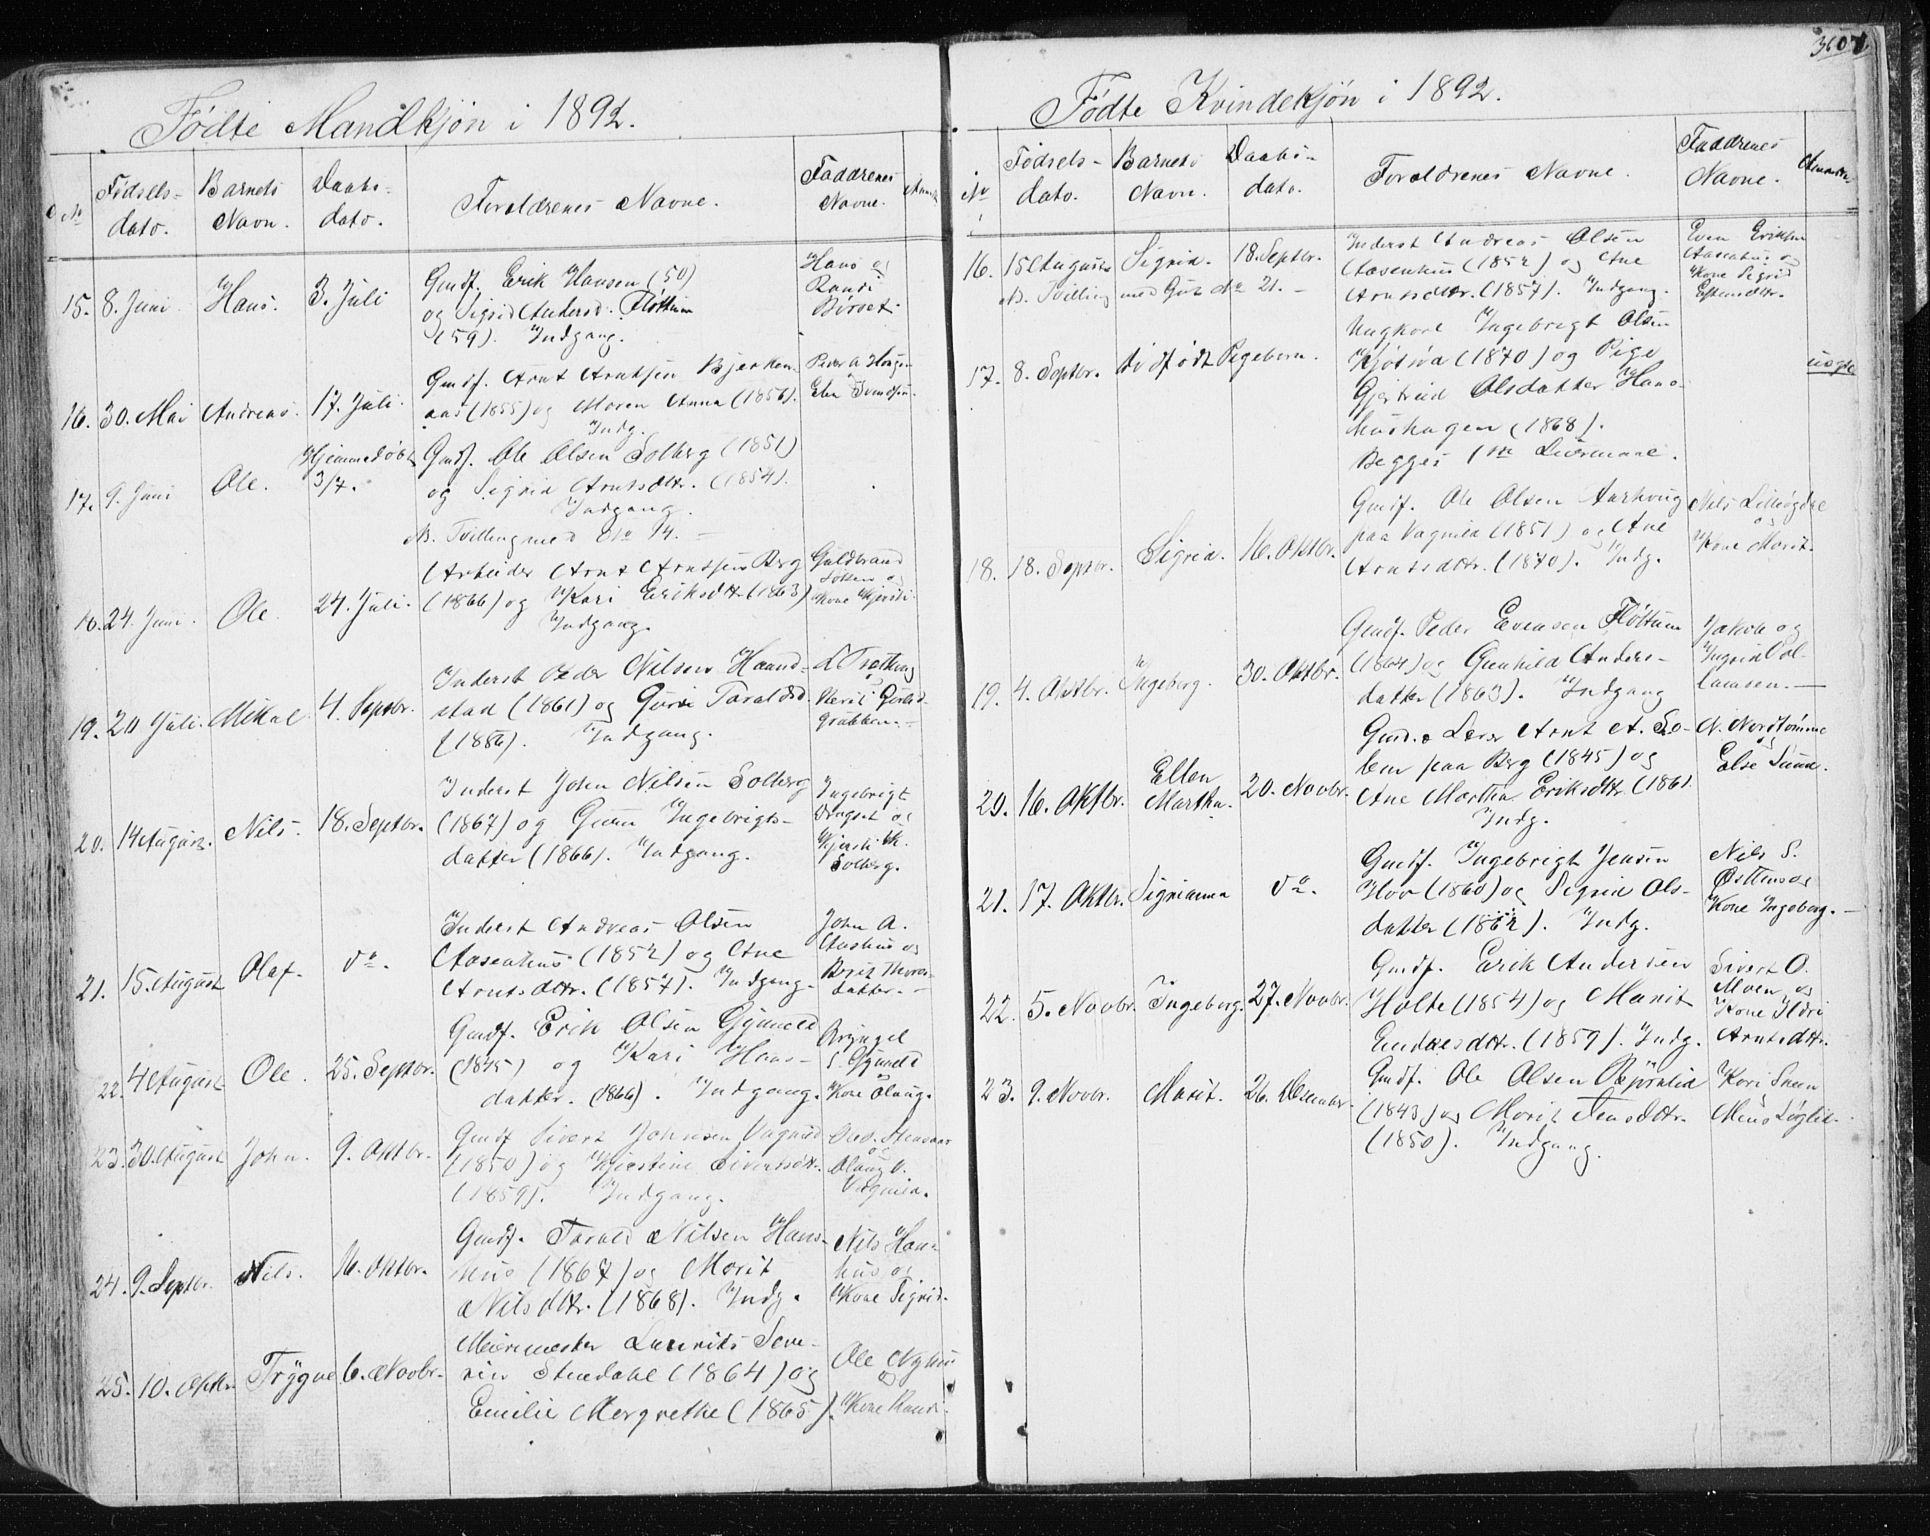 Fødte Mandkjøn i 1892.
No
Fødsels-
dato.
Barnets
Navn.
Daabs-
dato.
Forældrenes Navne.
Faddrenes
Navne.
15. 8. Juni Hans. 3. Juli
Gmdf. Erik Hansen (50)
og Sigrid Andersd. Fløttum
(59). Indgang.
Hans og
Randi
Børset
16. 30. Mai Andreas. 17. Juli.
Gmdf. Arnt Arntsen Bjerken-
aas (1855) og Maren Anna (1856).
Indg.
17. 9. Juni Ole. Hjemmedøbt
3/7.
Gmdf. Ole Olsen Solberg (1851)
og Sigrid Arntsdtr. (1854).
Indgang.
NB. Tvilling med No 14. —
18. 24. Juni. Ole. 24. Juli.
Arbeider Arnt Arntsen Berg
(1866) og Kari Eriksdtr. (1863)
Indgang.
Guldbrand
og
Kone Kjersti
19. 20 Juli. Mikal 4. Septbr.
Inderst Peder Nilsen Haand-
stad (1861) og Guri Taraldsd.
(1886). Indgang.
20. 14 August. Nils. 18. Septbr.
Inderst John Nilsen Solberg
(1867) og Guru Ingebrigts-
datter (1866). Indgang.
Ingebrigt
og
Solberg.
21. 15. August Olaf. do.
Inderst Andreas Olsen
Aasenhus (1852) og Ane
Arntsdtr. (1857). Indgang.
John A.
Aashus og
Berit Thores-
datter. —
22. 4 August Ole. 25. Septbr.
Gmdf. Erik Olsen Gynneld
(1845) og Kari Hans-
datter. (1866). Indgang.
Brynjel
S. Gynneld
Kone Olaug.
23. 30. August John. 9. Oktbr.
Gmdf Sivert Johnsen Vagnild
(1850) og Kjerstine Sivertsdtr.
(1859). Indgang.
og
Olaug O.
Vagnild.
24. 9. Septbr. Nils. 16. Oktbr.
Gmdf. Tarald Nilsen Hans-
hus (1867) og Marit
Nilsdtr. (1868). Indg.
Nils Hans-
hus og
Kone Sigrid.
25. 10. Oktbr. Trygve 6. Novbr.
Meierimester Laurits Seve-
rin Stendahl (1864) og
Emilie Margrethe (1865).
Ole Nyhus
og
Kone Randi.
Fødte Kvindekjøn i 1892.
No
Fødsels-
dato.
Barnets
Navn.
Daabs-
dato.
Forældrenes Navne.
Faddrenes
Navne.
16. 15 August Sigrid. 18. Septbr.
NB. Tvilling med Gut No 21. —
Inderst Andreas Olsen
Aasenhus (1852) og Ane
Arntsdtr. (1857). Indgang.
Even Eriksen
Aasenhus og
Kone Sigrid
Estensdtr.
17. 8. Septbr. dødfødt Pigebarn.
Ungkarl Ingebrigt Olsen
Kjøtsøa (1870) og Pige
Gjertrud Olsdatter Hans-
hushagen (1868).
Begges 1ste Leiermaal.
uægte
18. 18. Septbr. Sigrid. 16. Oktbr.
Gmdf. Ole Olsen Aarhoug
paa Vagnild (1851) og Ane
Arntsdtr. (1870). Indg.
Nils Lilleøgdal
og
Kone Marit.
19. 4. Oktbr. Ingeborg. 30. Oktbr.
Gmdf. Peder Evensen Fløttum
(1864) og Gunhild Anders-
datter (1863). Indgang
Jakob og
Ingrid Ol-
20. 16. Oktbr. Ellen
Martha. 20. Novbr.
Gmd. o Lærer Arnt A. So-
lem paa Berg (1845) og
Ane Martha Eriksdtr. (1861
Indg.
N. Nordtømme
og
Else Sunn.
21. 17. Oktbr. Sigrianna do.
Gmdf. Ingebrigt Jensen
Hov (1860) og Sigrid Ols-
datter (1862). Indg.
Nils S.
Østhus og
Kone Ingeborg. —
22. 5. Novbr. Ingeborg. 27. Novbr.
Gmdf. Erik Andersen
Holte (1854) og Marit
Endresdtr. (1859). Indg.
Sivert O.
Moen og
Kone Ildri
Arntsdtr.
23. 9. Novbr. Marit. 26. Desember.
Gmdf. Ole Olsen Bjørnlid
(1843) og Marit Jensdtr.
(1850). Indgang.
Kari Sunn